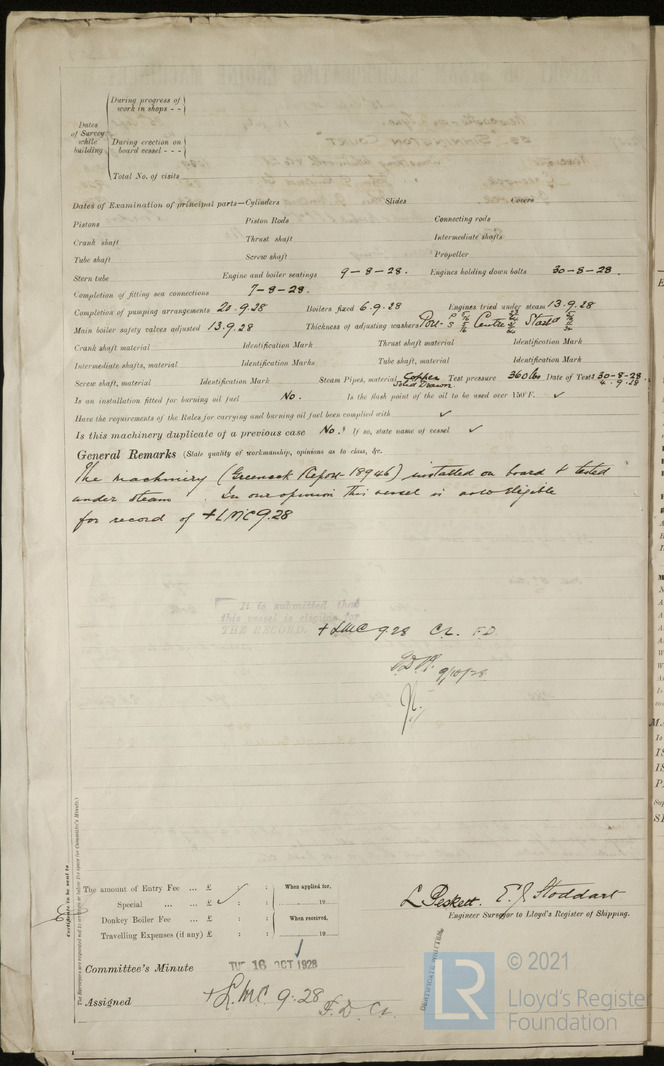 During progress of
work in shops - -
Dates
of Survey
while
building
During erection on
board vessel - - -
Total No. of visits
Dates of Examination of principal parts—Cylinders Slides Covers
Pistons Piston Rods Connecting rods
Crank shaft Thrust shaft Intermediate shafts
Tube shaft Screw shaft Propeller
Stern tube Engine and boiler seatings 9-8-28. Engines holding down bolts 30-8-28.
Completion of fitting sea connections 7-8-28.
Completion of pumping arrangements 20.9.28 Boilers fixed 6.9.28 Engines tried under steam 13.9.28
Main boiler safety valves adjusted 13.9.28 Thickness of adjusting washers Port- P S Centre Starbd
Crank shaft material Identification Mark Thrust shaft material Identification Mark
Intermediate shafts, material Identification Marks Tube shaft, material Identification Mark
Screw shaft, material Identification Mark Steam Pipes, material Copper Solid Drawn. Test pressure 360 lbs Date of Test 30-8-28 4.9.28
Is an installation fitted for burning oil fuel No. Is the flash point of the oil to be used over 150°F. ✓
Have the requirements of the Rules for carrying and burning oil fuel been complied with ✓
Is this machinery duplicate of a previous case No. If so, state name of vessel ✓
General Remarks (State quality of workmanship, opinions as to class, &c.
The machinery (Greenock Report 18946) installed on board & tested
under steam. In our opinion this vessel is now eligible
for record of +LMC 9.28
It is submitted that
this vessel is eligible for
THE RECORD.
+ LMC 9.28 CL. F.D.
9/10/28
Certificate to be sent to
The amount of Entry Fee ... £ : : When applied for,
Special ... ... £ : : 19
Donkey Boiler Fee ... £ : : When received,
Travelling Expenses (if any) £ : : 19
L Peskett. E. J. Stoddart
Engineer Surveyor to Lloyd's Register of Shipping.
Committee's Minute TUE 16 OCT 1928
Assigned +L.MC 9.28
F. D. CL.
© 2021
LR
Lloyd's Register
Foundation